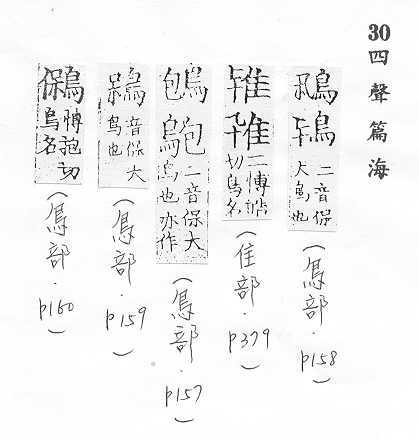 30
四聲篇海
二音保
大鳥也
(鳥部．p158)
二博浩
切鳥名
(隹部．p379)
二音保大
鳥也亦作
(鳥部．p157)
音保大
鳥也
(鳥部．p159)
博抱切
鳥名
(鳥部．p160)